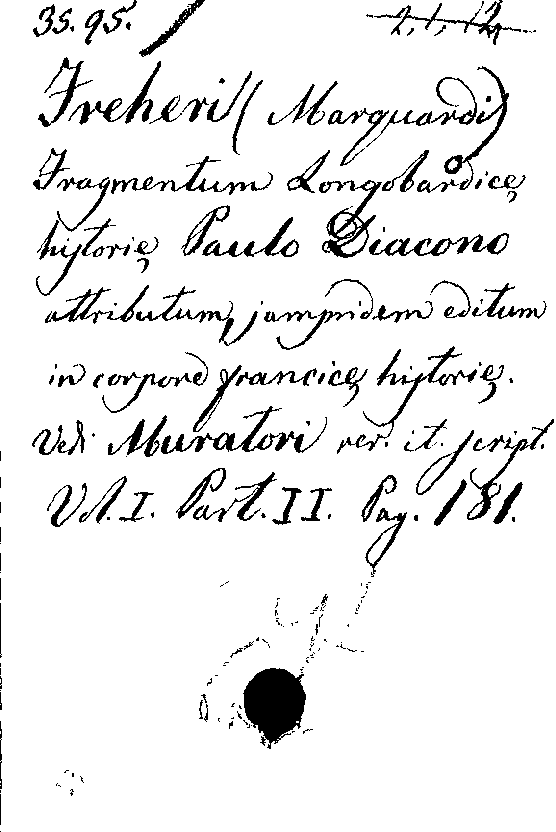 35.95. 2,1,12
Freheri (Marguardi)
Fragmentum Longobardicę
historię Paulo Diacono
attributum, jampridem editum
in corpore francicę historię.
Vedi Muratori rer. it. script.
Vol. I. Part. II. Pag. 181.